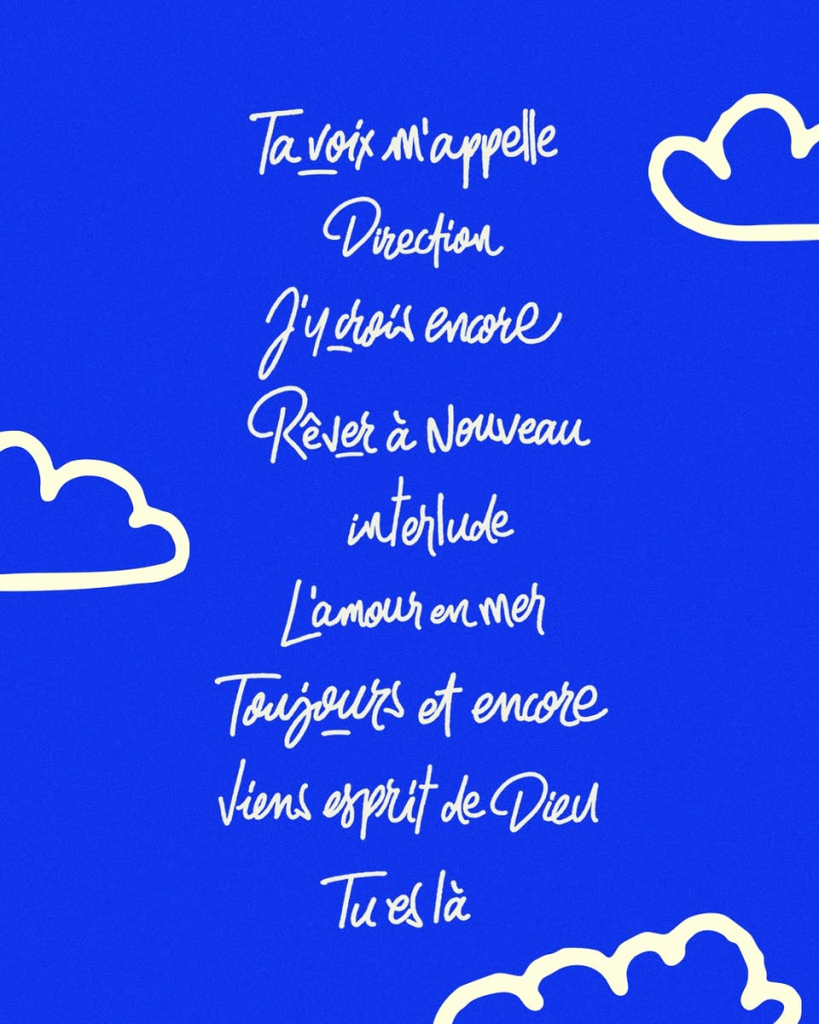 Ta voix m'appelle
Direction
J'y crois encore
Rêver à Nouveau
interlude
L'amour en mer
Toujours et encore
Viens esprit de Dieu
Tu es là